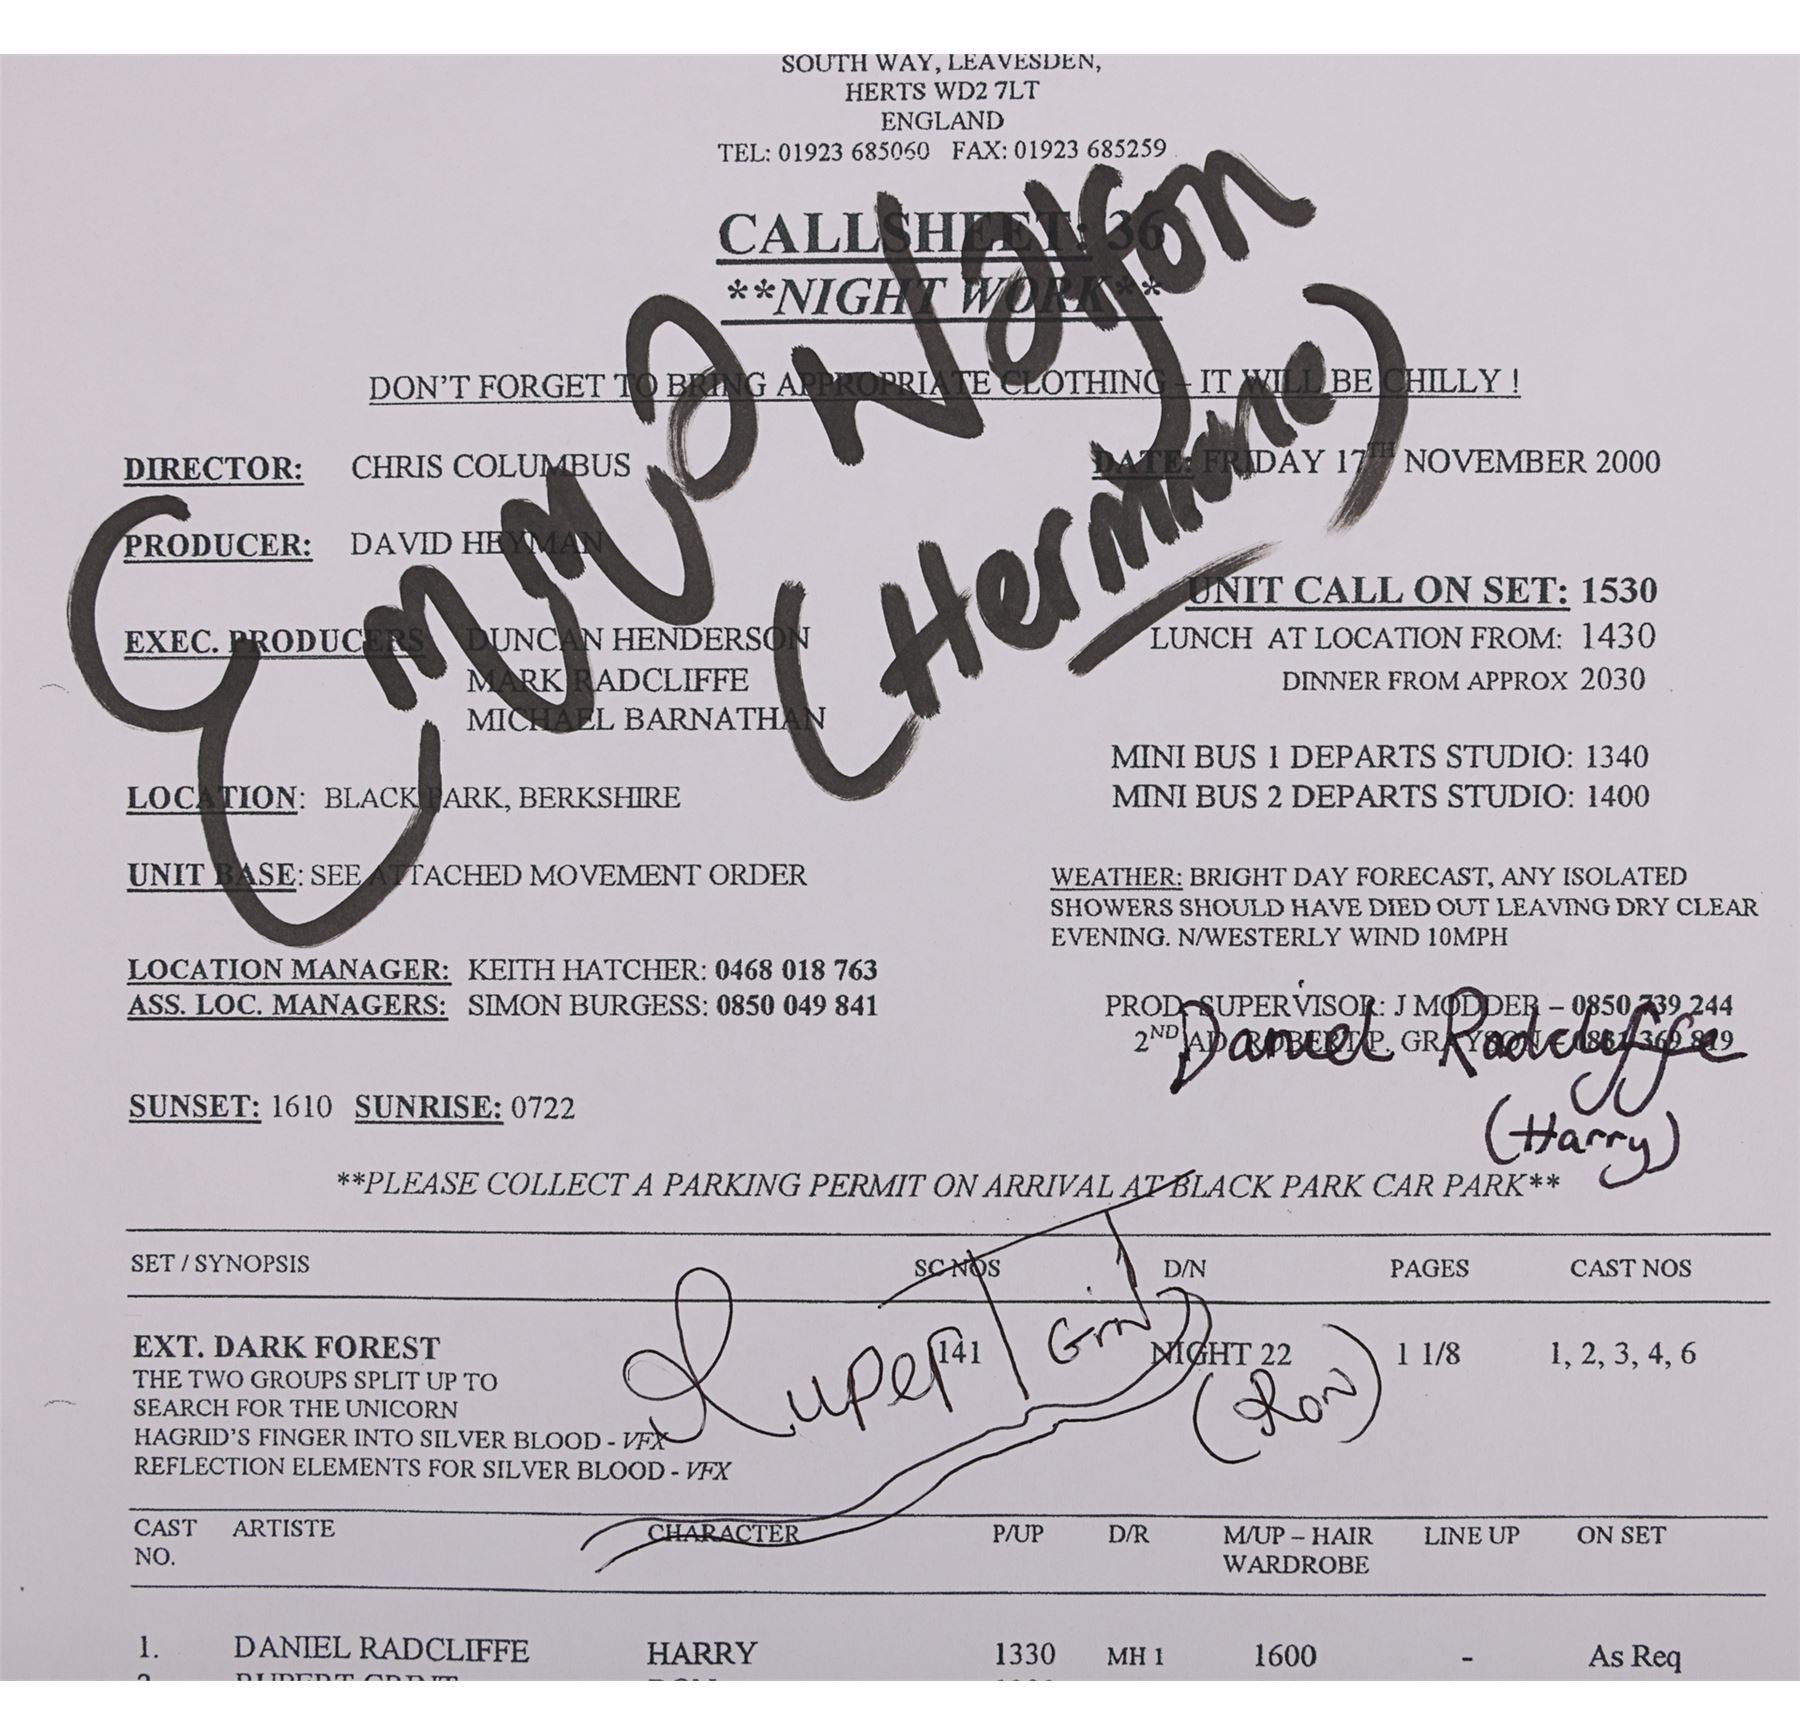 SOUTH WAY, LEAVESDEN,
HERTS WD2 7LT
ENGLAND
TEL: 01923 685060 FAX: 01923 685259
CALLSHEET: 36
**NIGHT WORK**
DON'T FORGET TO BRING APPROPRIATE CLOTHING – IT WILL BE CHILLY !
Emma Watson
(Hermione)
DIRECTOR: CHRIS COLUMBUS
DATE: FRIDAY 17TH NOVEMBER 2000
PRODUCER: DAVID HEYMAN
UNIT CALL ON SET: 1530
EXEC. PRODUCERS DUNCAN HENDERSON
LUNCH AT LOCATION FROM: 1430
MARK RADCLIFFE
DINNER FROM APPROX 2030
MICHAEL BARNATHAN
MINI BUS 1 DEPARTS STUDIO: 1340
LOCATION: BLACK PARK, BERKSHIRE
MINI BUS 2 DEPARTS STUDIO: 1400
UNIT BASE: SEE ATTACHED MOVEMENT ORDER
WEATHER: BRIGHT DAY FORECAST, ANY ISOLATED
SHOWERS SHOULD HAVE DIED OUT LEAVING DRY CLEAR
EVENING. N/WESTERLY WIND 10MPH
LOCATION MANAGER: KEITH HATCHER: 0468 018 763
ASS. LOC. MANAGERS: SIMON BURGESS: 0850 049 841
PROD. SUPERVISOR: J MODDER – 0850 739 244
2ND AD: ROBERT P. GRAYSON –
Daniel Radcliffe
(Harry)
SUNSET: 1610 SUNRISE: 0722
**PLEASE COLLECT A PARKING PERMIT ON ARRIVAL AT BLACK PARK CAR PARK**
SET / SYNOPSIS SC NOS D/N PAGES CAST NOS
EXT. DARK FOREST 141 NIGHT 22 1 1/8 1, 2, 3, 4, 6
THE TWO GROUPS SPLIT UP TO
SEARCH FOR THE UNICORN
HAGRID'S FINGER INTO SILVER BLOOD - VFX
REFLECTION ELEMENTS FOR SILVER BLOOD - VFX
Rupert Grint
(Ron)
CAST ARTISTE CHARACTER P/UP D/R M/UP – HAIR LINE UP ON SET
NO. WARDROBE
1. DANIEL RADCLIFFE HARRY 1330 MH 1 1600 - As Req
RUPERT GRINT RON